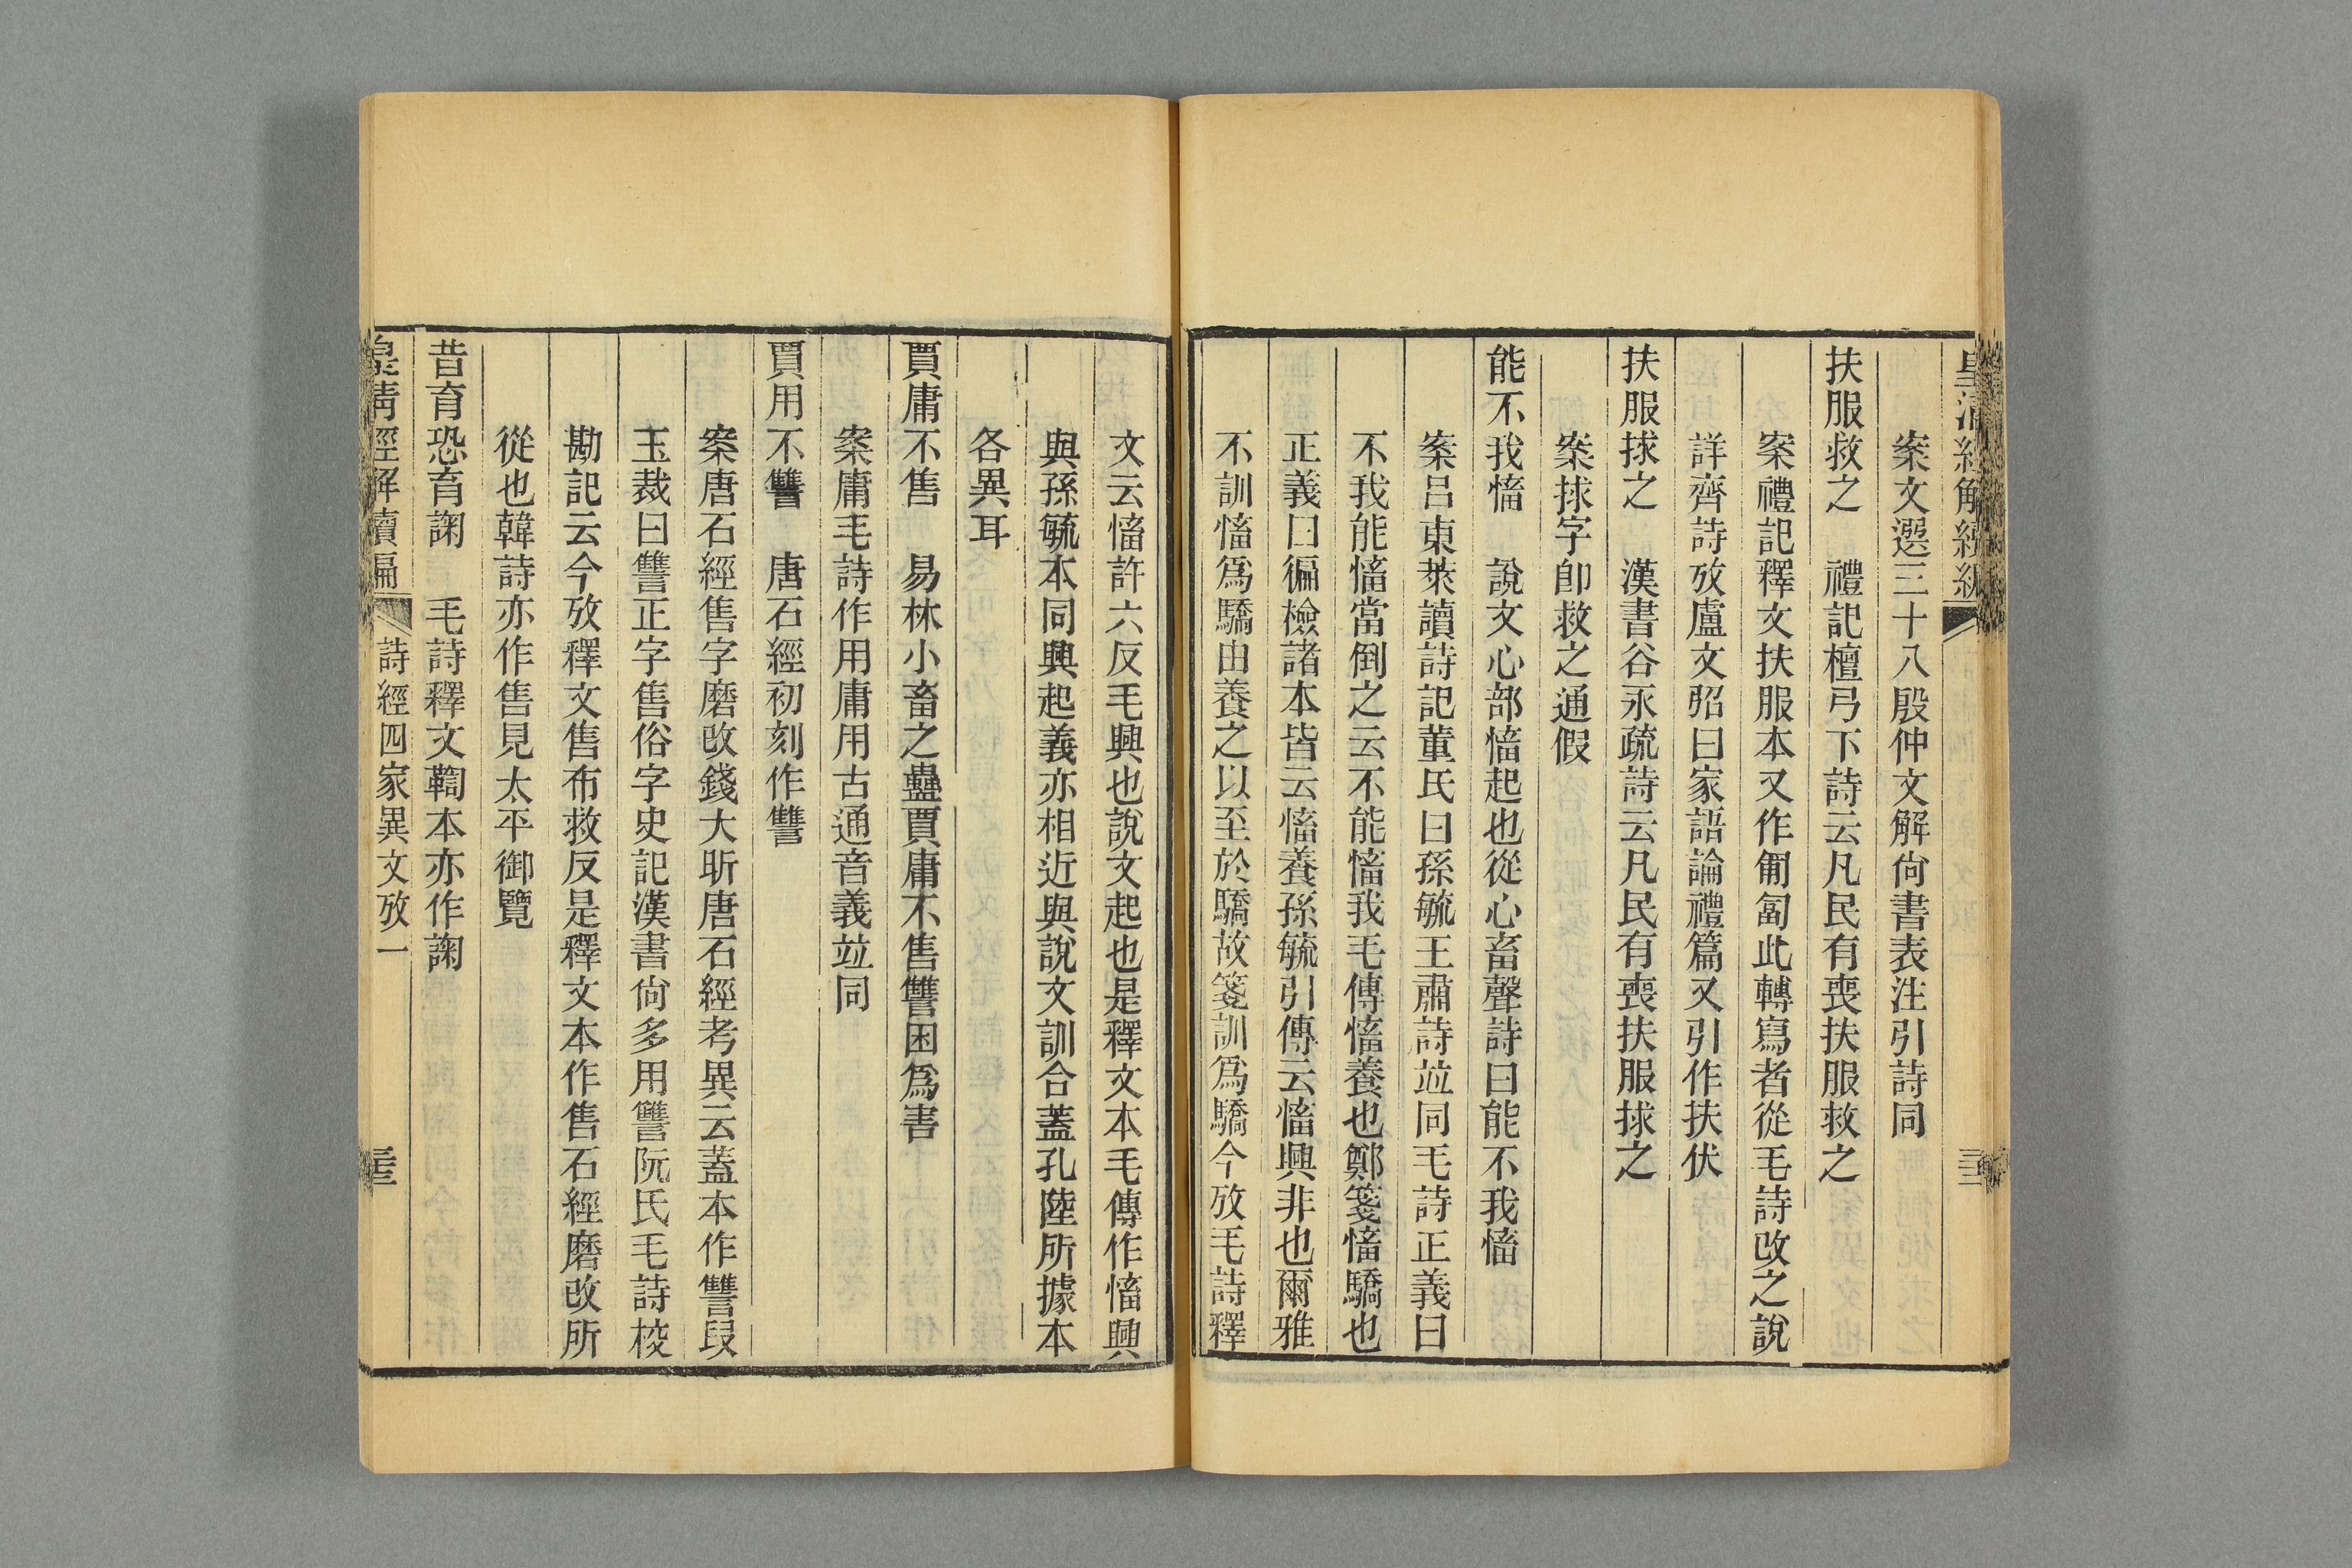 案文選三十八殷仲文解尙書表注引詩同
扶服救之　禮記檀弓下詩云凡民有喪扶服救之
案禮記釋文扶服本又作匍匐此轉寫者從毛詩改之說
詳齊詩攷盧文弨曰家語論禮篇又引作扶伏
扶服捄之　漢書谷永疏詩云凡民有喪扶服捄之
案捄字卽救之通假
能不我慉　說文心部慉起也從心畜聲詩曰能不我慉
案呂東萊讀詩記董氏曰孫毓王肅詩並同毛詩正義曰
不我能慉當倒之云不能慉我毛傳慉養也鄭箋慉驕也
正義曰徧檢諸本皆云慉養孫毓引傳云慉興非也爾雅
不訓慉爲驕由養之以至於驕故箋訓爲驕今攷毛詩釋
文云慉許六反毛興也說文起也是釋文本毛傳作慉興
與孫毓本同興起義亦相近與說文訓合蓋孔陸所據本
各異耳
賈庸不售　易林小畜之蠱賈庸不售讐困爲害
案庸毛詩作用庸用古通音義並同
賈用不讐　唐石經初刻作讐
案唐石經售字磨改錢大昕唐石經考異云蓋本作讐段
玉裁曰讐正字售俗字史記漢書尙多用讐阮氏毛詩挍
勘記云今攷釋文售布救反是釋文本作售石經磨改所
從也韓詩亦作售見太平御覽
昔育恐育諊　毛詩釋文鞫本亦作諊
皇淸經解續編　詩經四家異文攷一